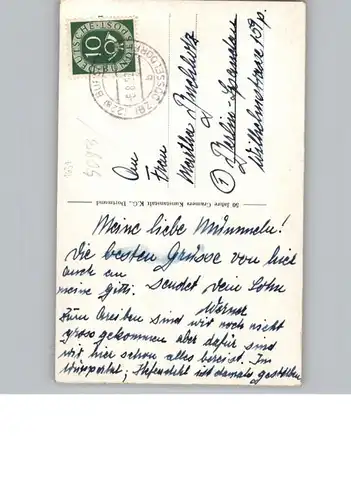 DEUTSCHE POST
10
(22a)
An
Frau
Martha Buchholz
(1) Berlin-Spandau
Wilhelmstrasse 159p.
50 Jahre Cramers Kunstanstalt K.G., Dortmund
Meine liebe Mümmeln!
Die besten Grüsse von hier
auch an
meine Gitti. Sendet Dein Sohn
Werner
Zum Arbeiten sind wir noch nicht
gross gekommen aber dafür sind
wir hier schon alles bereist. Im
Wuppertal; ist damals gestorben